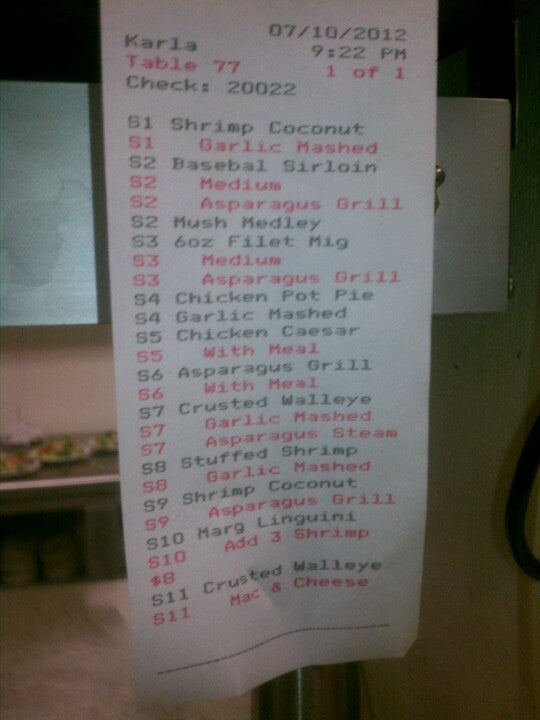 07/10/2012
Karla 9:22 PM
Table 77 1 of 1
Check: 20022
S1 Shrimp Coconut
S1 Garlic Mashed
S2 Basebal Sirloin
S2 Medium
S2 Asparagus Grill
S2 Mush Medley
S3 6oz Filet Mig
S3 Medium
S3 Asparagus Grill
S4 Chicken Pot Pie
S4 Garlic Mashed
S5 Chicken Caesar
S5 With Meal
S6 Asparagus Grill
S6 With Meal
S7 Crusted Walleye
S7 Garlic Mashed
S7 Asparagus Steam
S8 Stuffed Shrimp
S8 Garlic Mashed
S9 Shrimp Coconut
S9 Asparagus Grill
S10 Marg Linguini
S10 Add 3 Shrimp
$8
S11 Crusted Walleye
S11 Mac & Cheese